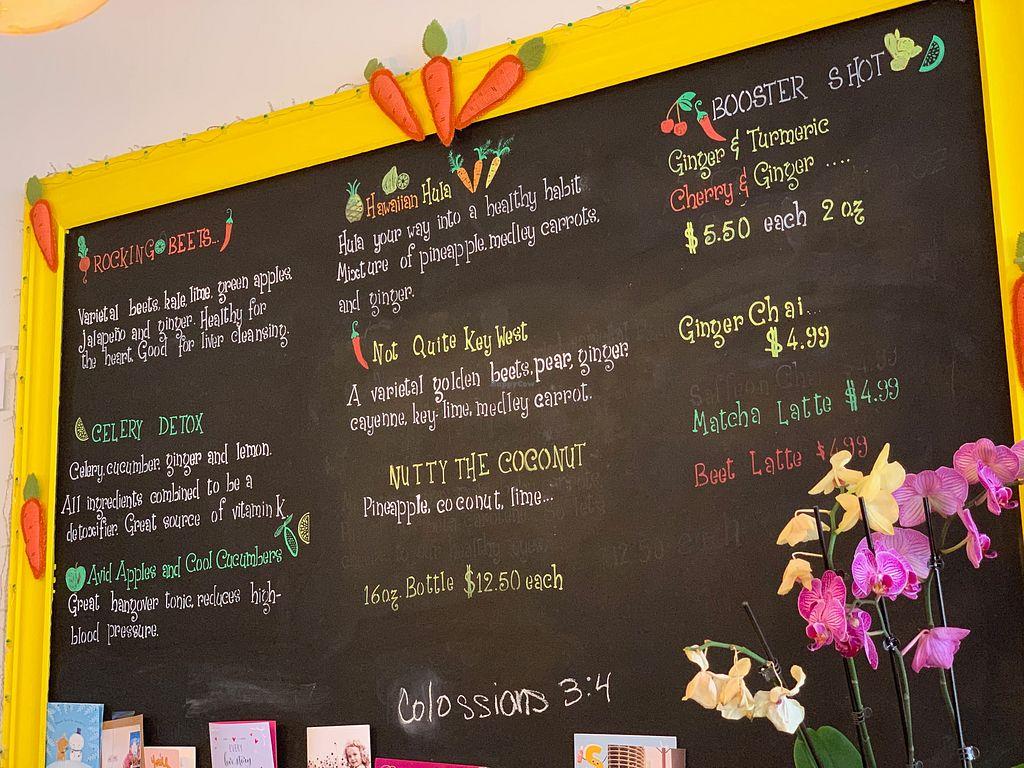 ROCKING BEETS...
Varietal beets, kale, lime, green apples,
Jalapeño and ginger. Healthy for
the heart. Good for liver cleansing.
CELERY DETOX
Celery, cucumber, ginger and lemon.
All ingredients combined to be a
detoxifier. Great source of vitamin k
Avid Apples and Cool Cucumbers
Great hangover tonic, reduces high-
blood pressure.
Hawaiian Hula
Hula your way into a healthy habit.
Mixture of pineapple, medley carrots,
and ginger.
Not Quite Key West
A varietal golden beets, pear, ginger,
cayenne, key-lime, medley carrot.
NUTTY THE COCONUT
Pineapple, coconut, lime...
16oz. Bottle $12.50 each
Colossians 3:4
BOOSTER SHOT
Ginger & Turmeric
Cherry & Ginger ....
$5.50 each 2 oz
Ginger Chai...
$4.99
Matcha Latte $4.99
Beet Latte $4.99
HappyCow